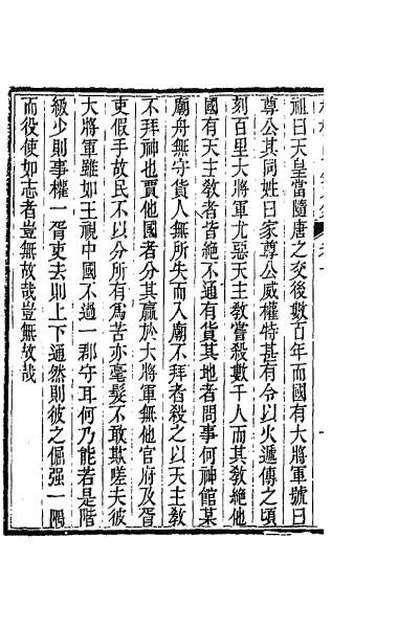 祖曰天皇當隨唐之交後數百年而國有大將軍號曰
尊公其同姓曰家尊公威權特甚有令以火遞傳之頃
刻百里大將軍尤惡天主教嘗殺數千人而其教絕他
國有天主教者皆絕不通有貨其地者問事何神館某
廟舟無守貨人無所失而入廟不拜者殺之以天主教
不拜神也賈他國者分其贏於大將軍無他官府及胥
吏假手故民不以分所有為苦亦毫髮不敢欺嗟夫彼
大將軍雖如王視中國不過一郡守耳何乃能若是階
級少則事權一胥吏去則上下通然則彼之倔强一隅
而役使如志者豈無故哉豈無故哉